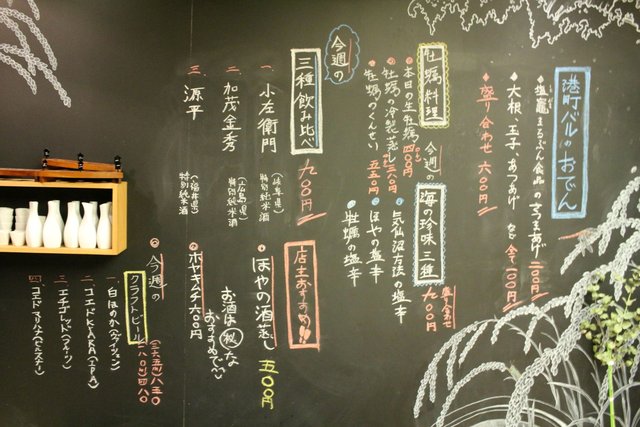 港町バルのおでん
◆塩竈まるぶん食品のさつま揚げ 二〇〇円
◆大根、玉子、あつあげ など 全て一〇〇円
◆盛り合わせ 六〇〇円
牡蠣料理
●本日の生牡蠣 四〇〇円
●牡蠣の冷製蒸し 三八〇円
●牡蠣のくんせい 五五〇円
今週の
海の珍味 三種
盛り合わせ
九〇〇円
●気仙沼方法の塩辛
●ほやの塩辛
●牡蠣の塩辛
今週の
三種飲み比べ
九〇〇円
一、小左衛門
(岐阜県)
特別純米酒
二、加茂金秀
(広島県)
特別純米酒
三、源平
(福井県)
特別純米酒
店主おすすめ!!
●ほやの酒蒸し 五〇〇円
お酒は(秘)な
おすすめで〜い
●ホヤキムチ 六〇〇円
●今週の
クラフトビール
一 白ほのか
二 コエドKYARA(IPA)
三 エチゴレッド
四 コエド